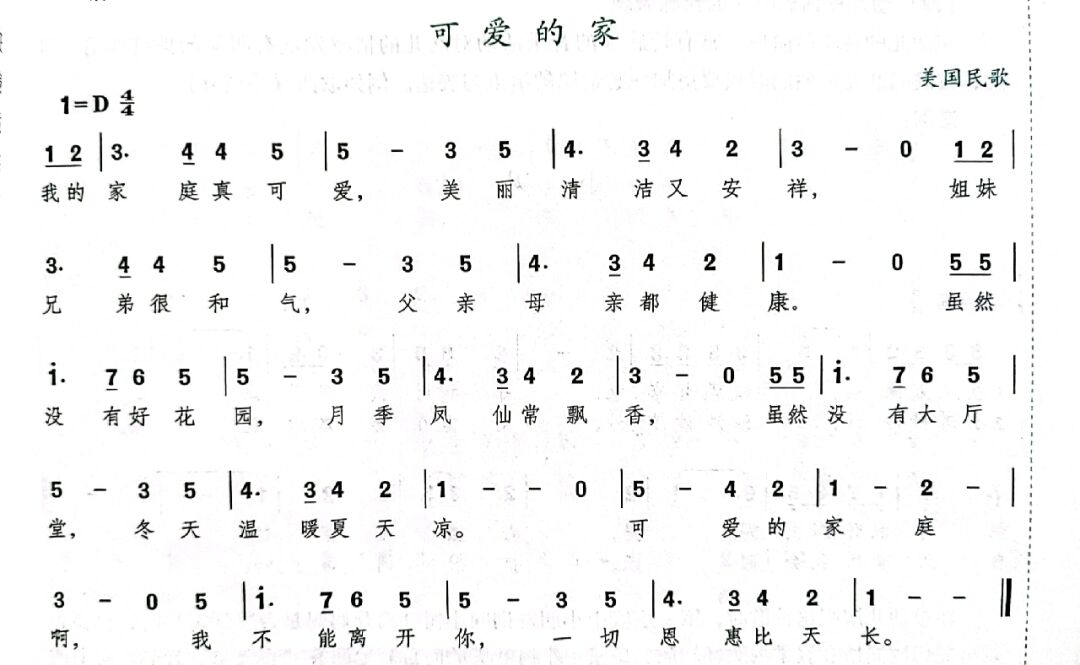 可爱的家
美国民歌
1=D 4/4
1 2 | 3· 4 4 5 | 5 - 3 5 | 4· 3 4 2 | 3 - 0 1 2 |
我的家 庭真可 爱, 美丽清 洁又安祥, 姐妹
3· 4 4 5 | 5 - 3 5 | 4· 3 4 2 | 1 - 0 5 5 |
兄 弟很和 气, 父亲母 亲都健康。 虽然
i· 7 6 5 | 5 - 3 5 | 4· 3 4 2 | 3 - 0 5 5 | i· 7 6 5 |
没 有好花园, 月季凤 仙常飘香, 虽然没 有大厅
5 - 3 5 | 4· 3 4 2 | 1 - - 0 | 5 - 4 2 | 1 - 2 - |
堂, 冬天温 暖夏天凉。 可 爱的家 庭
3 - 0 5 | i· 7 6 5 | 5 - 3 5 | 4· 3 4 2 | 1 - - ‖
啊, 我不 能离开你, 一切恩 惠比天长。